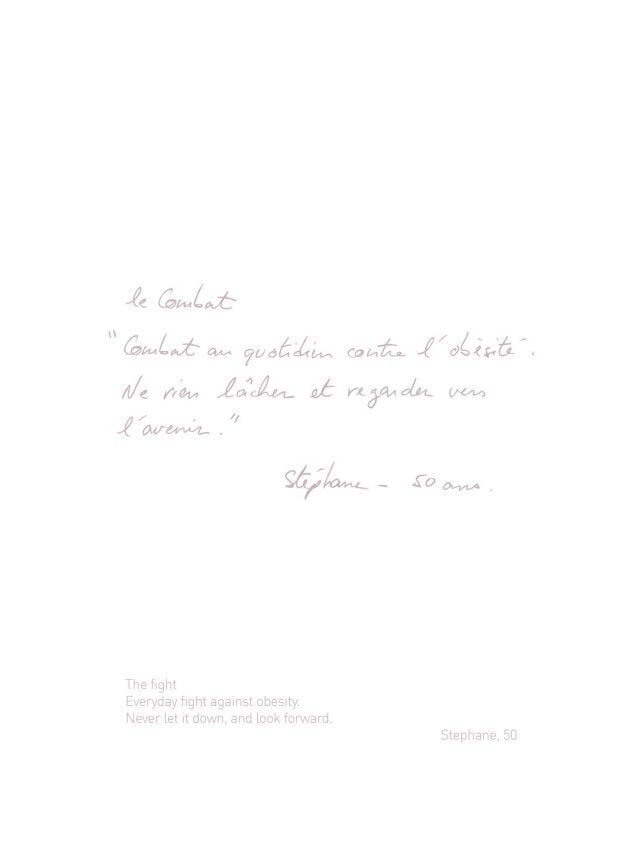 le Combat
"Combat au quotidien contre l'obésité.
Ne rien lâcher et regarder vers
l'avenir."
Stéphane - 50 ans.
The fight
Everyday fight against obesity.
Never let it down, and look forward.
Stephane, 50